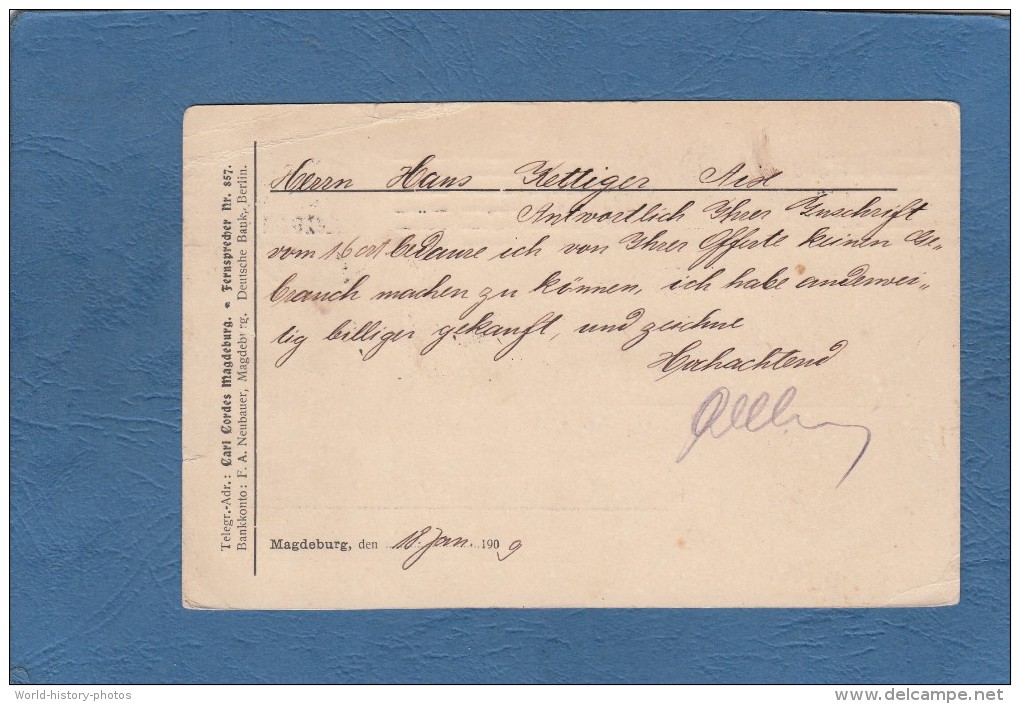 Telegr.-Adr.: Carl Cordes Magdeburg. * Fernsprecher Nr. 857.
Bankkonto: F. A. Neubauer, Magdeburg. Deutsche Bank, Berlin.
Herrn Hans Rettiger
Antwortlich Ihrer Zuschrift
vom 16 crt bedaure ich von Ihrer Offerte keinen Ge-
brauch machen zu können, ich habe anderwei-
tig billiger gekauft, und zeichne
Hochachtend
Magdeburg, den 18. Jan. 1909
World-history-photos
www.delcampe.net